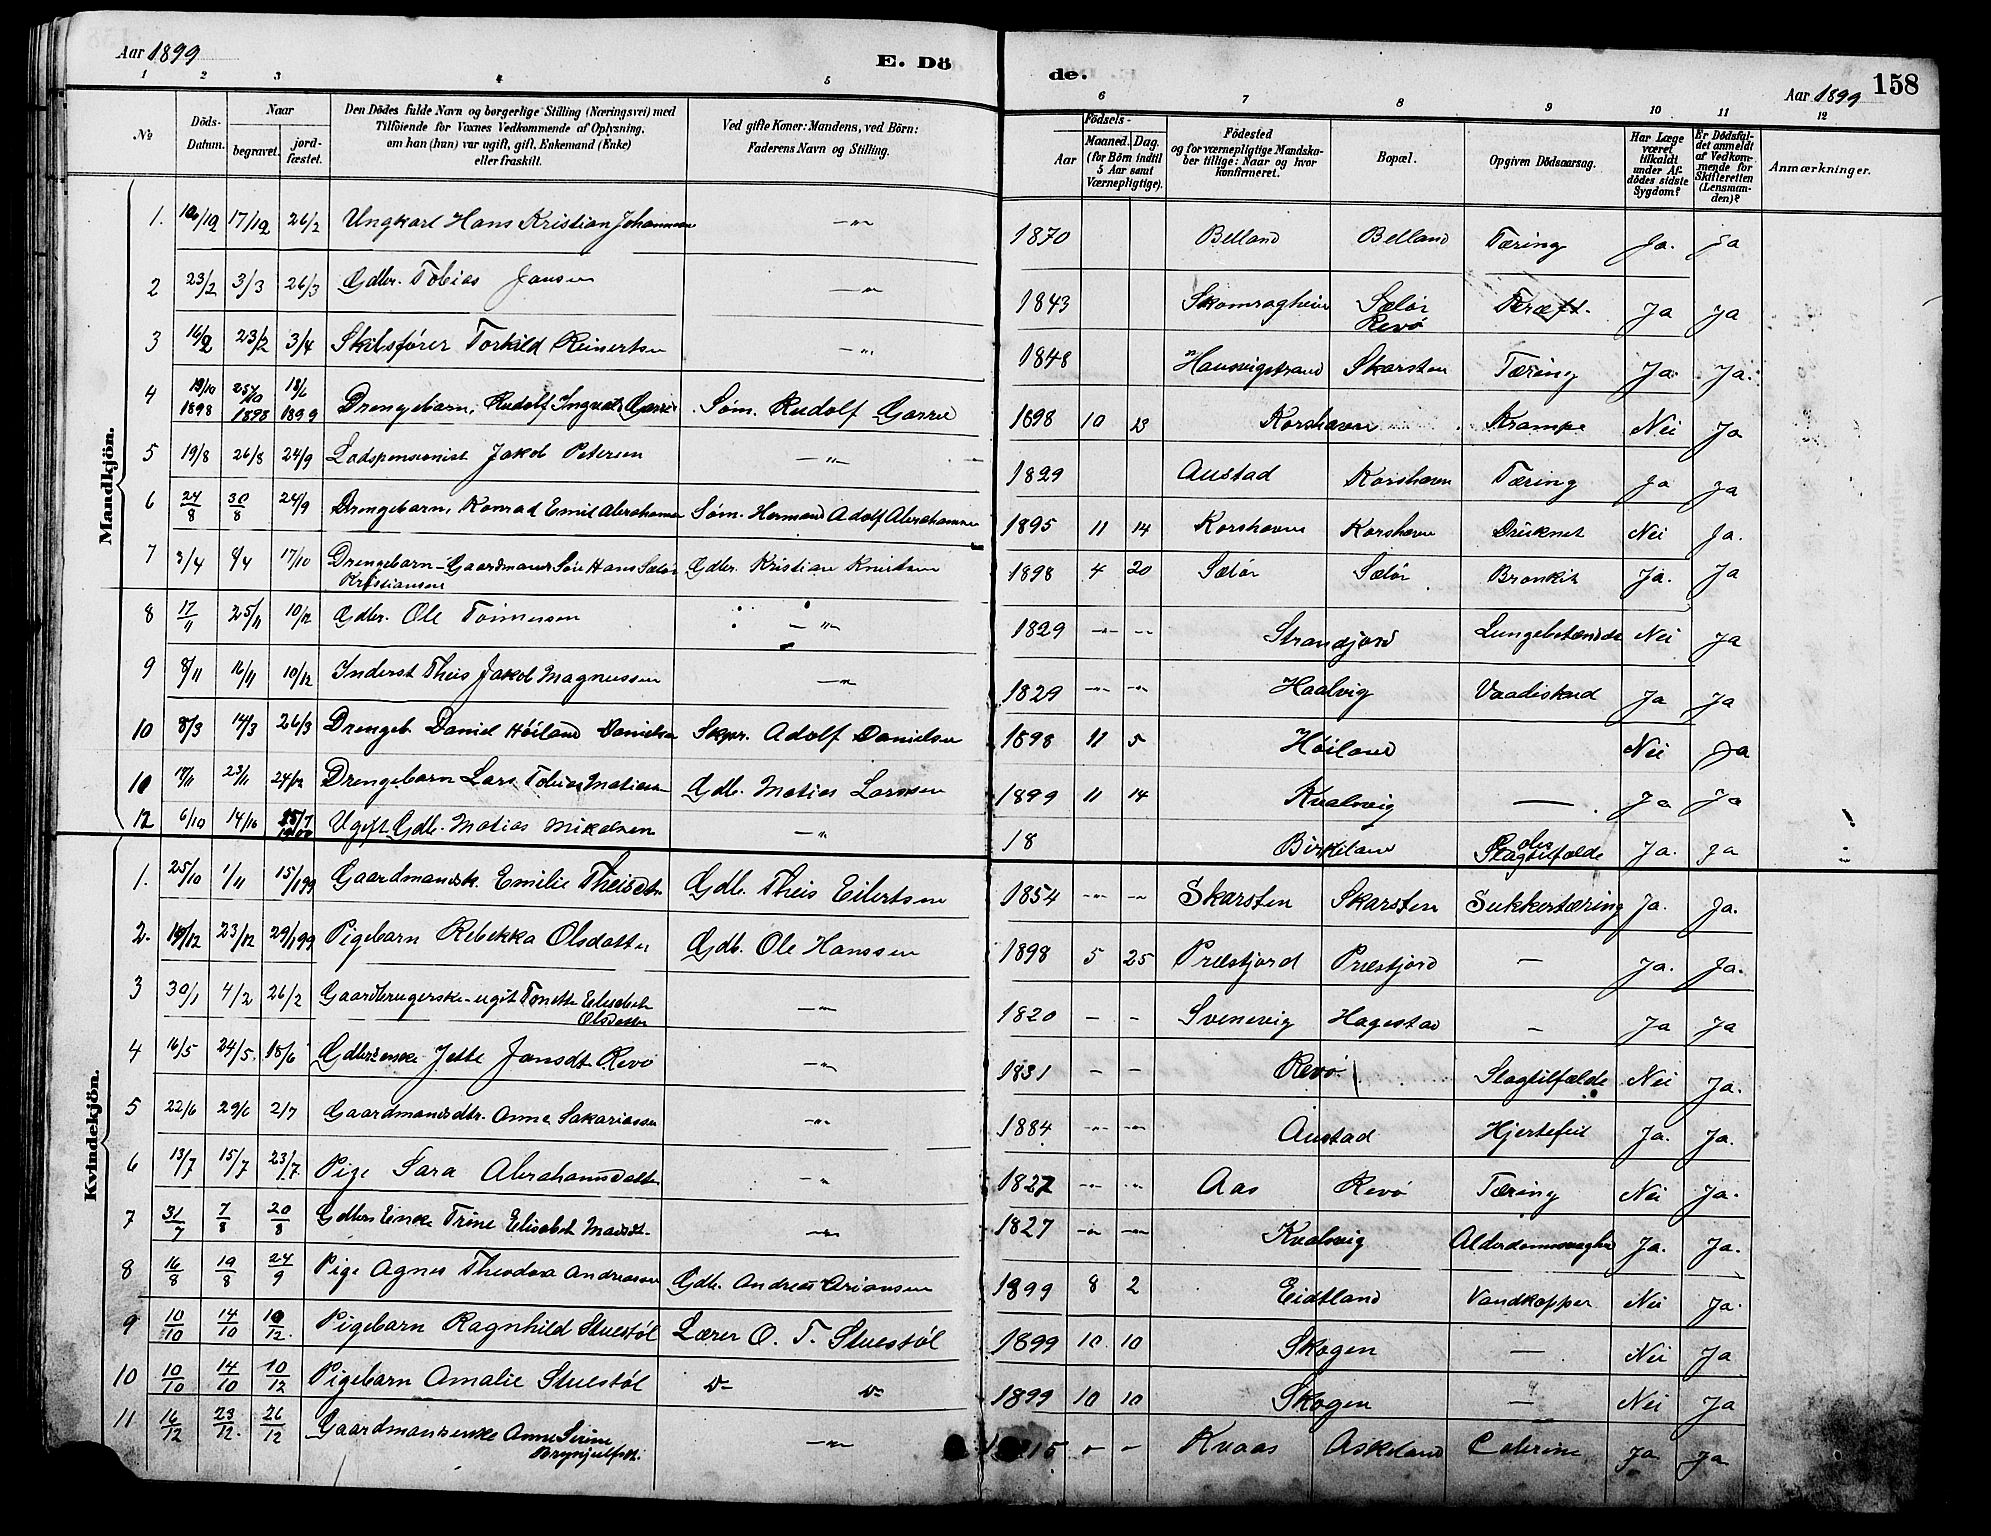 Aar 1899
E. Dö
de.
Aar 1899
158
1 2 3 4 5
6 7 8 9 10 11 12
No
Döds-Datum.
Naar
begravet.
jord-fæstet.
Den Dödes fulde Navn og borgerlige Stilling (Næringsvei) med
Tilföiende for Voxnes Vedkommende af Oplysning,
om han (hun) var ugift, gift, Enkemand (Enke)
eller fraskilt.
Ved gifte Koner: Mandens, ved Börn:
Faderens Navn og Stilling.
Födsels-
Aar
Maaned. Dag.
(for Börn indtil
5 Aar samt
Værnepligtige).
Födested
og for værnepligtige Mandska-
ber tillige: Naar og hvor
konfirmeret.
Bopæl.
Opgiven Dödsaarsag.
Har Læge
været
tilkaldt
under Af-
dödes sidste
Sygdom?
Er Dödsfal-
det anmeldt
af Vedkom-
mende for
Skifteretten
(Lensman-
den)?
Anmærkninger.
Mandkjön.
1. 17/12 26/2 Ungkarl Hans Kristian Johannesen —"— 1870 Belland Belland Tæring Ja. Ja
2 23/2 3/3 26/3 Gdbr. Tobias Jansen —"— 1843 Skomragheien Sælør Revø Kræft. Ja Ja
3 16/2 23/2 3/4 Skibsfører Torkild Reinertsen —"— 1848 Hausvigstrand Skarsten Tæring Ja. Ja.
4 19/10 1898 25/10 1898 18/6 1899 Drengebarn, Rudolf Ingvald Garre Søm. Rudolf Garre 1898 10 13 Korshavn Krampe Nei Ja
5 19/8 26/8 24/9 Lodspensionist Jakob Petersen —"— 1829 Austad Korshavn Tæring Ja Ja
6 24/8 30/8 24/9 Drengebarn, Konrad Emil Abrahamsen Søm. Hermand Adolf Abrahamsen 1895 11 14 Korshavn Korshavn Druknet Nei Ja.
7 3/4 8/4 17/10 Drengebarn - Gaardmands Søn Hans Sælør Kristiansen Gdbr. Kristian Knutsen 1898 4 20 Sælør Sælør Bronkit Ja. Ja
8 17/11 25/11 10/12 Gdbr. Ole Tønnessen —"— 1829 —"— —"— Strandjord Lungebetændelse Nei Ja
9 8/11 16/11 10/12 Inderst Theis Jakob Magnussen —"— 1829 —"— —"— Haalvig Vaadeskud Ja Ja
10 8/3 14/3 26/3 Drengeb. Daniel Høiland Danielsen Skpr. Adolf Danielsen 1898 11 5 Høiland Nei Ja
10 23/11 24/12 Drengebarn Lars Tobias Matiassen Gdb. Matias Larssen 1899 11 14 Kvalsvig — Ja Ja
12 6/10 14/10 Ugift Gdb. Matias Mikalsen —"— 18 Birkeland Slagtilfælde Ja. Ja
Kvindekjön.
1. 25/10 1/11 15/1 99 Gaardmandsk. Emilie Theisdtr Gdb. Theis Eilertsen 1854 —"— —"— Skarsten Skarsten Sukkertæring Ja. Ja.
2. 23/12 29/1 99 Pigebarn Rebekka Olsdatter Gdb. Ole Hanssen 1898 5 25 Præstjord Præstjord — Ja. Ja.
3 30/1 4/2 26/2 Gaardbrugerske - ugit Tonette Elisabet Olsdatter —"— 1820 — — Svenevig Hagestad — Ja Ja
4 16/5 24/5. 18/6 Gdbrsenke Jette Jansdtr Revø —"— 1831 — — Revø. Slagtilfælde Nei Ja.
5 22/6 29/6 2/7 Gaardmandsdtr. Anne Sakariassen —"— 1884 —"— —"— Austad Hjertefeil Ja. Ja.
6 13/7 15/7 23/7 Pige Sara Abrahamsdatter —"— 1827 —"— —"— Aas Revø Tæring Nei Ja.
7 31/7 7/8 20/8 Gdbrs Enke Trine Elisabet Madsdt. —"— 1827 —"— —"— Kvalsvig Alderdomssvaghed Ja. Ja.
8 16/8 19/8 24/9 Pige Agnes Theodora Andreassen Gdb. Andreas Ariansen 1899 8 2 Eidtland Vandkopper Nei Ja.
9 10/10 14/10 10/12. Pigebarn Ragnhild Stuestøl Lærer O. T. Stuestøl 1899 10 10 Skogen — Nei Ja
10 10/10 14/10 10/12 Pigebarn Amalie Stuestøl D— D— 1899 10 10 Skogen — Nei Ja
11 16/12 23/12. 26/12 Gaardmandsenke Anne Serine Brynjulfsdt. —"— 1815 — — Kvaas Askeland Colerine Ja Ja